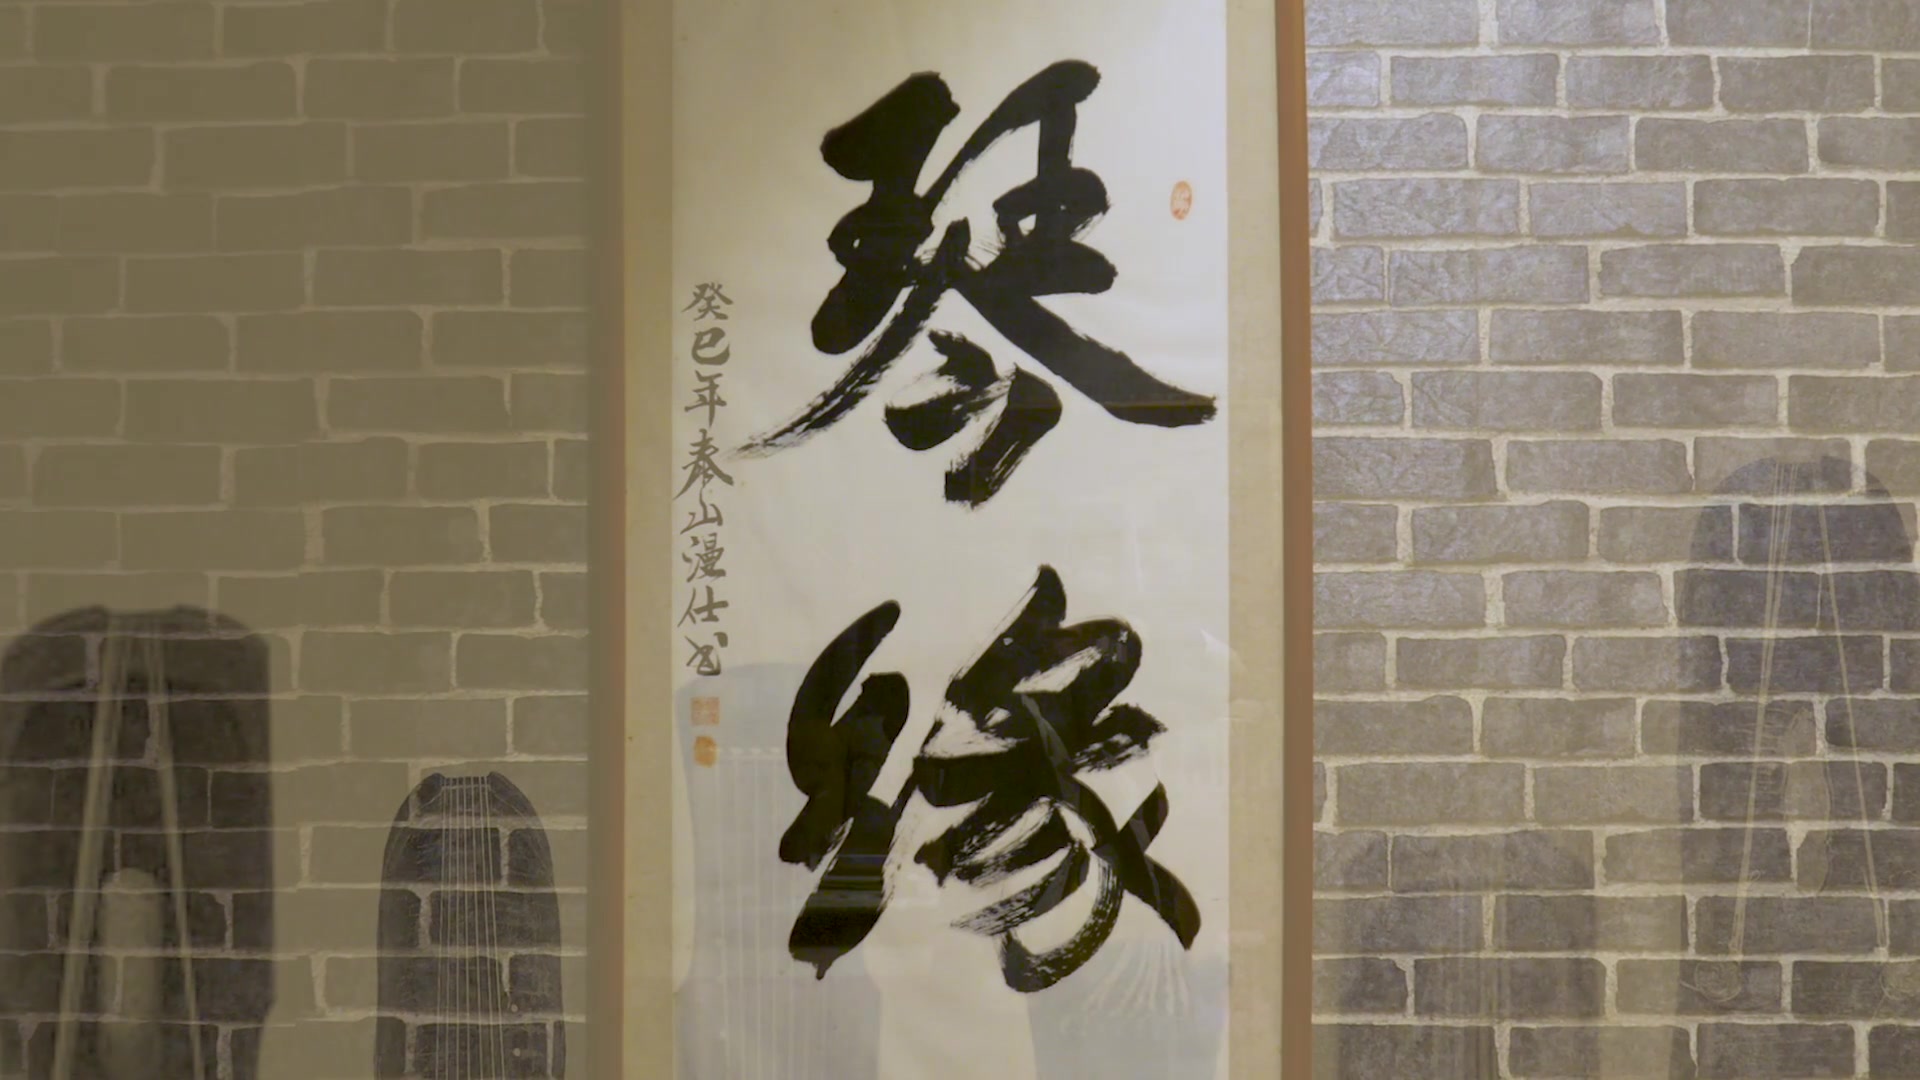 琴
緣
癸巳年春山漫仕书